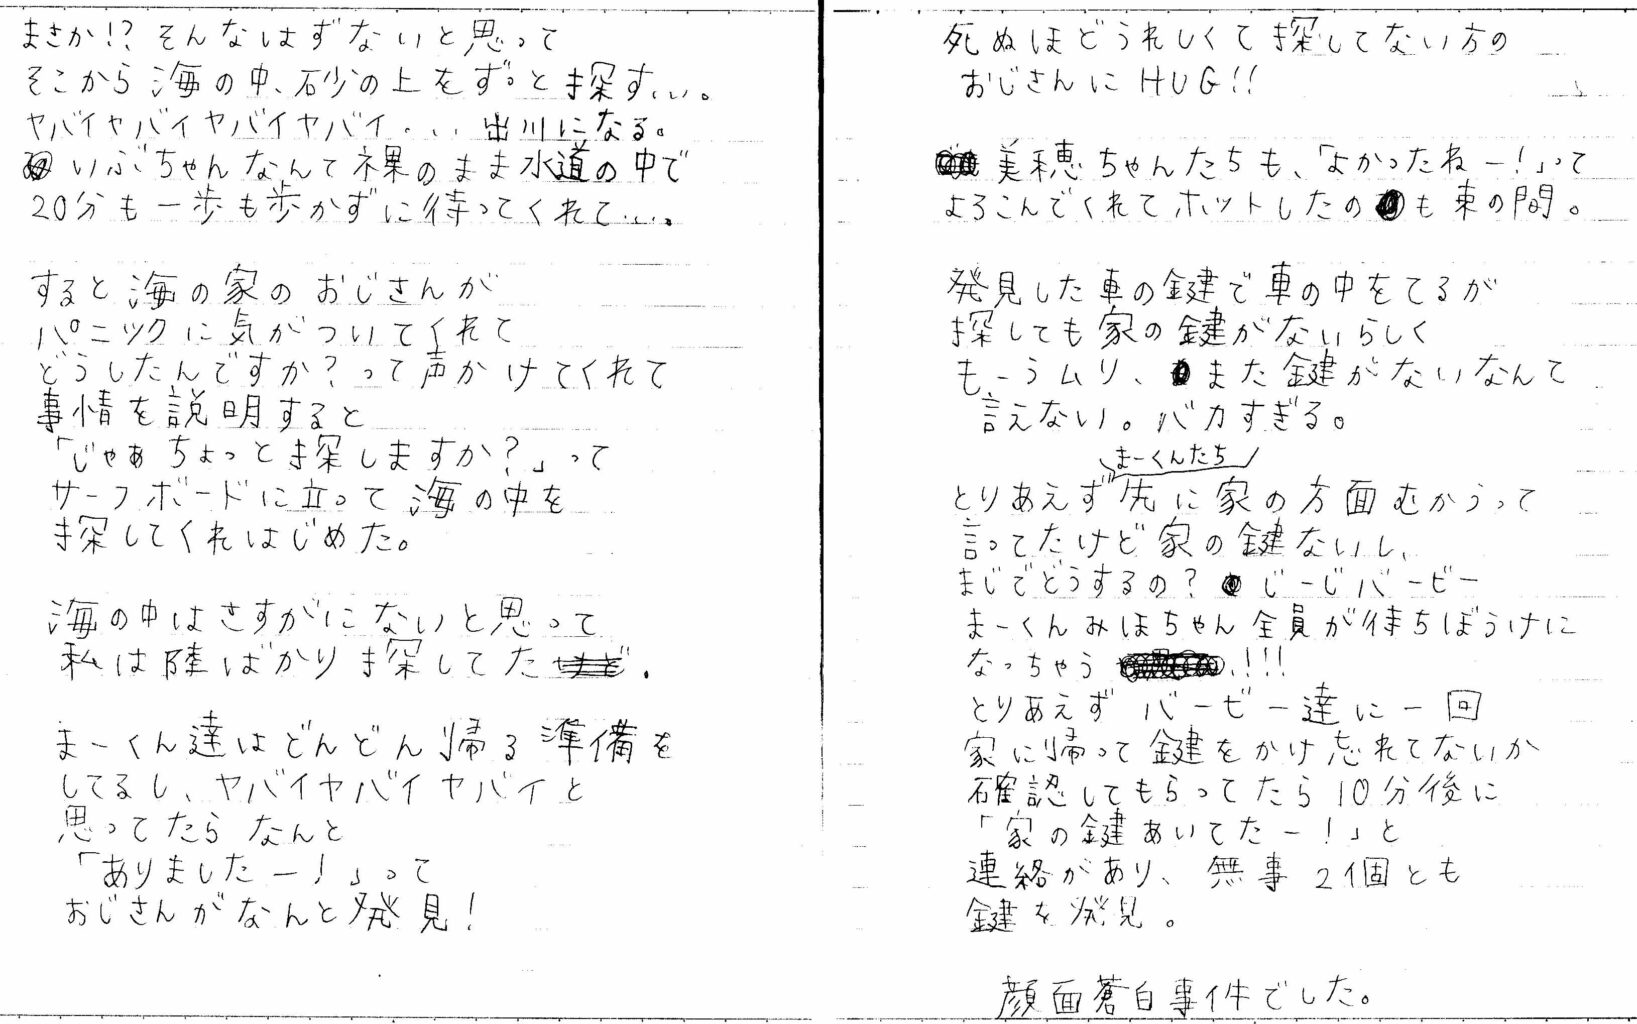 まさか!? そんなはずないと思って
そこから海の中、砂の上をずっと探す...。
ヤバイヤバイヤバイヤバイ... 出川になる。
いぶちゃんなんて裸のまま水道の中で
20分も一歩も歩かずに待ってくれて...。
すると海の家のおじさんが
パニックに気がついてくれて
どうしたんですか?って声かけてくれて
事情を説明すると
「じゃぁちょっと探しますか?」って
サーフボードに立って海の中を
探してくれはじめた。
海の中はさすがにないと思って
私は陸ばかり探してた.
まーくん達はどんどん帰る準備を
してるし、ヤバイヤバイヤバイと
思ってたらなんと
「ありましたー!」って
おじさんがなんと発見!
死ぬほどうれしくて探してない方の
おじさんにHUG!!
美穂ちゃんたちも、「よかったねー!」って
よろこんでくれてホットしたのも束の間。
発見した車の鍵で車の中をてるが
探しても家の鍵がないらしく
もーうムリ、また鍵がないなんて
言えない。バカすぎる。
まーくんたち
とりあえず先に家の方面むかうって
言ってたけど家の鍵ないし、
まじでどうするの? じーじバービー
まーくんみほちゃん全員が待ちぼうけに
なっちゃう!!!
とりあえずバービー達に一回
家に帰って鍵をかけ忘れてないか
確認してもらってたら10分後に
「家の鍵あいてたー!」と
連絡があり、無事2個とも
鍵を発見。
顔面蒼白事件でした。